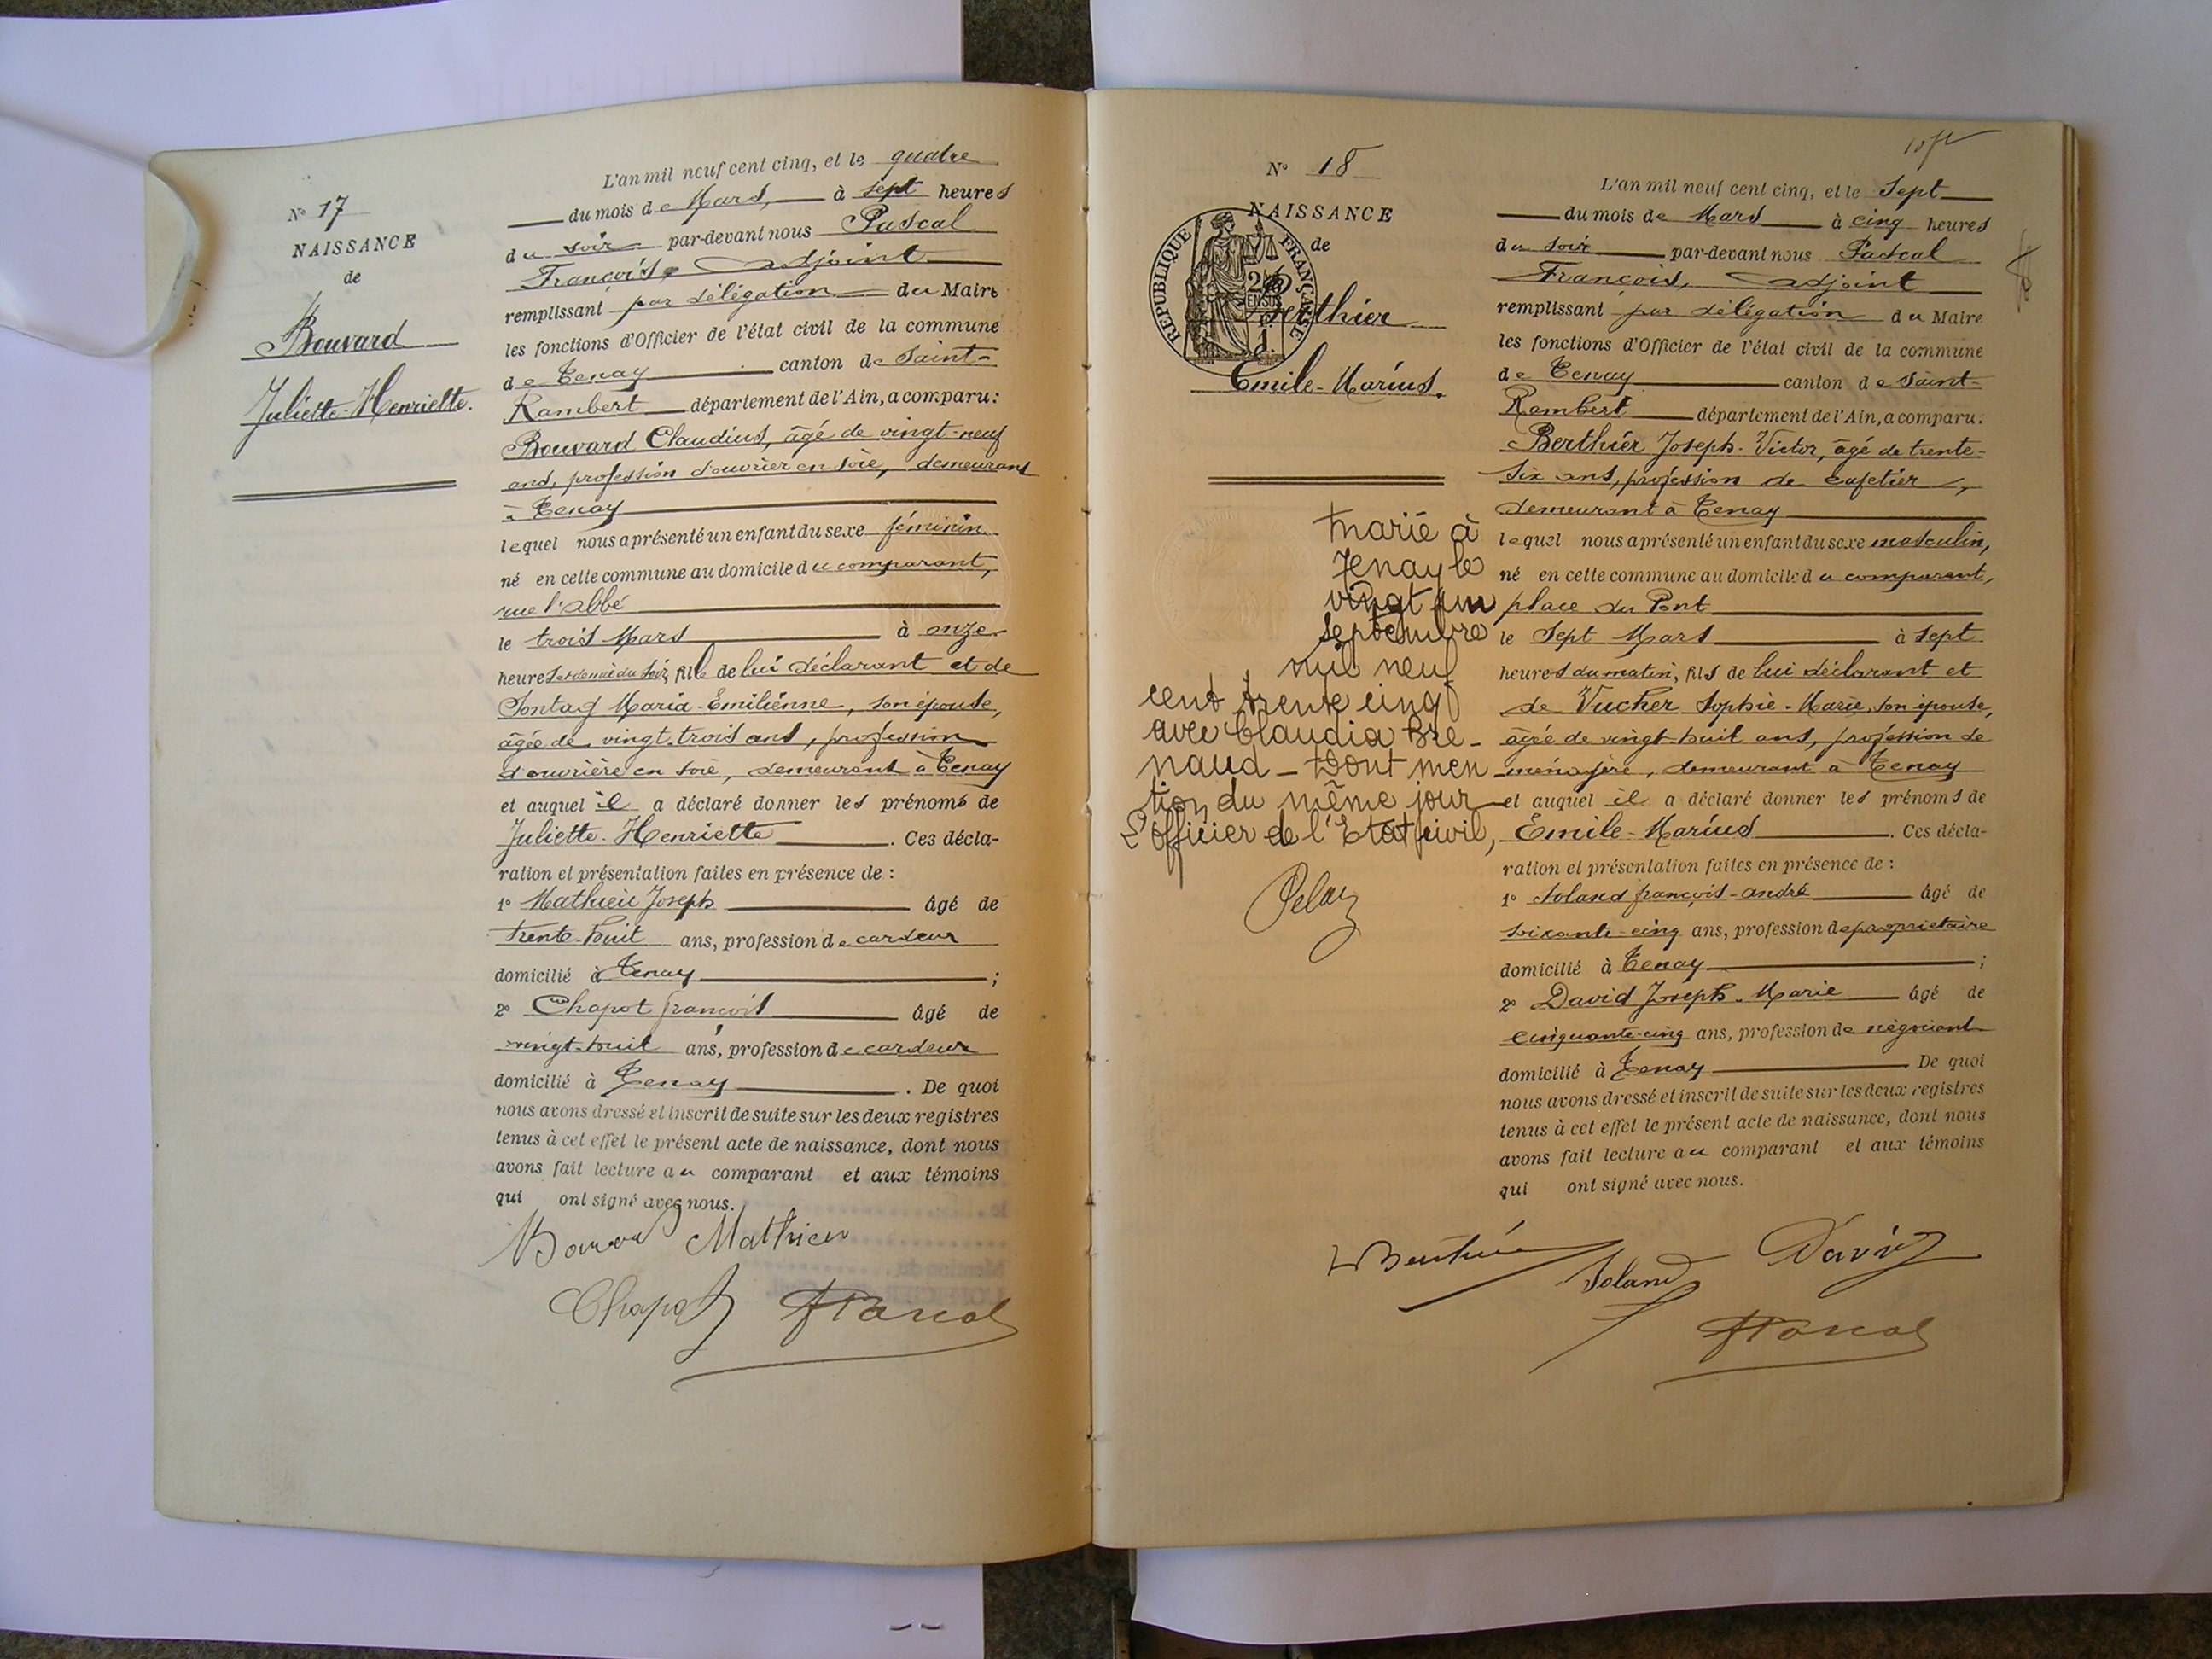 N° 17
NAISSANCE
de
Bouvard
Juliette-Henriette.
L'an mil neuf cent cinq, et le quatre
du mois de Mars, à sept heures
du soir par-devant nous Pascal
François, adjoint
remplissant par délégation du Maire
les fonctions d'Officier de l'état civil de la commune
de Tenay canton de Saint-
Rambert département de l'Ain, a comparu:
Bouvard Claudius, âgé de vingt-neuf
ans, profession d'ouvrier en soie, demeurant
à Tenay
lequel nous a présenté un enfant du sexe féminin
né en cette commune au domicile du comparant,
rue l'abbé
le trois Mars à onze
heures et demie du soir, fille de lui déclarant et de
Sontag Maria-Emilienne, son épouse,
âgée de vingt-trois ans, profession
d'ouvrière en soie, demeurant à Tenay
et auquel il a déclaré donner les prénoms de
Juliette-Henriette. Ces décla-
ration et présentation faites en présence de :
1° Mathieu Joseph âgé de
trente-huit ans, profession de cardeur
domicilié à Tenay ;
2° Chapot françois âgé de
vingt-huit ans, profession de cardeur
domicilié à Tenay. De quoi
nous avons dressé et inscrit de suite sur les deux registres
tenus à cet effet le présent acte de naissance, dont nous
avons fait lecture au comparant et aux témoins
qui ont signé avec nous.
Mathieu
Chapot FPascal
N° 18
NAISSANCE
de
REPUBLIQUE FRANÇAISE
Berthier
Emile-Marius.
marié à
Tenay le
vingt un
septembre
mil neuf
cent trente cinq
avec Claudia Bre-
naud - Dont men
tion du même jour
L'officier de l'Etat civil,
Pelaz
L'an mil neuf cent cinq, et le Sept
du mois de Mars à cinq heures
du soir par-devant nous Pascal
François, adjoint
remplissant par délégation du Maire
les fonctions d'Officier de l'état civil de la commune
de Tenay canton de Saint-
Rambert département de l'Ain, a comparu.
Berthier Joseph-Victor, âgé de trente-
six ans, profession de cafetier,
demeurant à Tenay
lequel nous a présenté un enfant du sexe masculin,
né en cette commune au domicile du comparant,
place du Pont
le Sept Mars à sept
heures du matin, fils de lui déclarant et
de Vucher Sophie-Marie, son épouse,
âgée de vingt-huit ans, profession de
ménagère, demeurant à Tenay
et auquel il a déclaré donner les prénoms de
Emile-Marius. Ces décla-
ration et présentation faites en présence de :
1° Soland françois-andré âgé de
soixante-cinq ans, profession de propriétaire
domicilié à Tenay ;
2° David Joseph-Marie âgé de
cinquante-cinq ans, profession de négociant
domicilié à Tenay De quoi
nous avons dressé et inscrit de suite sur les deux registres
tenus à cet effet le présent acte de naissance, dont nous
avons fait lecture au comparant et aux témoins
qui ont signé avec nous.
Berthier Soland David
FPascal